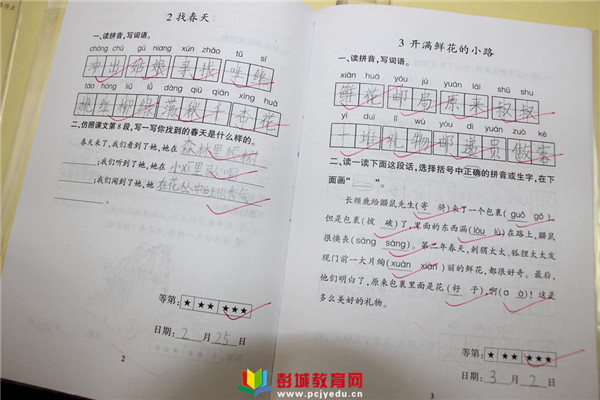 2 找春天
一、读拼音,写词语。
chōng chū gū niang xún zhǎo tǔ sī
冲出 姑娘 寻找 吐丝
táo hóng liǔ lǜ dàng qiū qiān xìng huā
桃红柳绿 荡秋千 杏花
二、仿照课文第 8 段,写一写你找到的春天是什么样的。
春天来了,我们看到了她,她在
;我们听到了她,她在
;我们闻到了她,她
等第: ★ ★★ ★★★
日期: 2 月 25 日
2
3 开满鲜花的小路
一、读拼音,写词语。
xiān huā yóu jú yuán lái shū shu
鲜花 邮局 原来 叔叔
yì duī lǐ wù yóu dì yuán zuò kè
一堆 礼物 邮递员 做客
二、读一读下面这段话,选择括号中正确的拼音或生字,在下
面画“ ”。
长颈鹿给鼹鼠先生(寄 骑)来了一个包裹(guǒ gǒ),
但是包裹(披 破)了,里面的东西漏(lòu lù)在路上,鼹鼠
很懊丧(sāng sàng)。第二年春天,刺猬太太、狐狸太太发
现门前一大片绚(xuàn xiàn)丽的鲜花,都很好奇。最后,
他们明白了,原来包裹里面是花(籽 子),啊(ā à)!这是
多么美好的礼物。
等第: ★ ★★ ★★★
日期: 3 月 2 日
3
彭城教育网
www.pcjyedu.cn